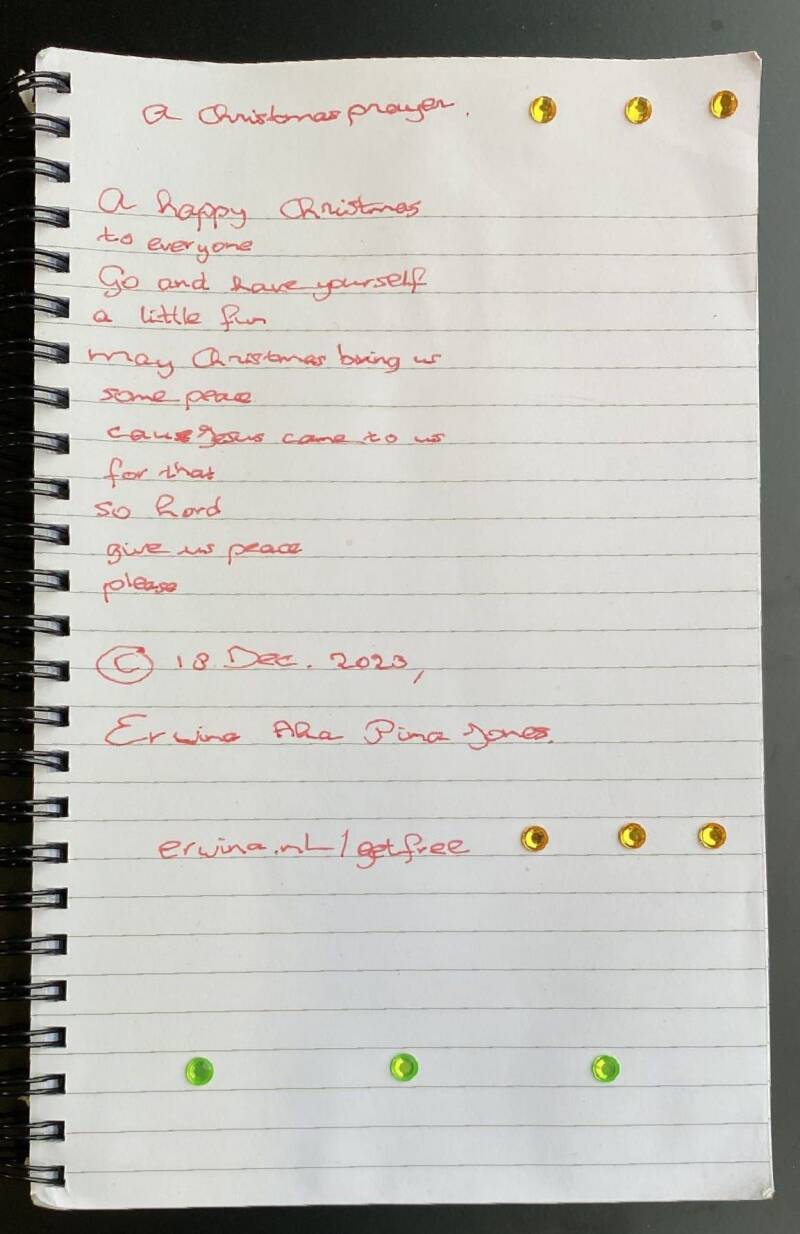 A Christmas prayer.
A happy Christmas
to everyone
Go and have yourself
a little fun
may Christmas bring us
some peace
cause Jesus came to us
for that
so hord
give us peace
please
© 18 Dec. 2023,
Erwina AKa Pina Jones.
erwina.nL/getfree